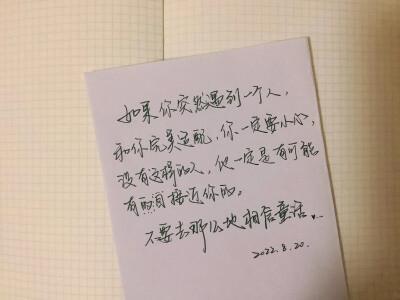 如果你突然遇到一个人，
和你完美适配，你一定要小心，
没有这样的人，他一定是有可能
有时间接近你的。
不要去那么地相信童话...
2022.8.20.